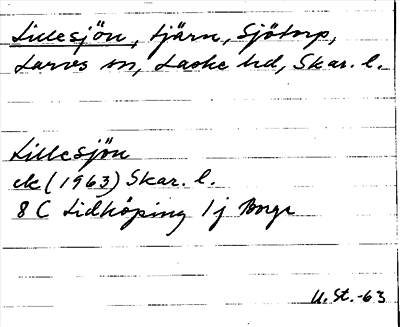 Lillesjön, tjärn, Sjötorp,
Larvs sn, Laske hd, Skar. l.
Lillesjön
ek (1963) Skar. l.
8 C Lidköping 1j Borge
U. St. -63